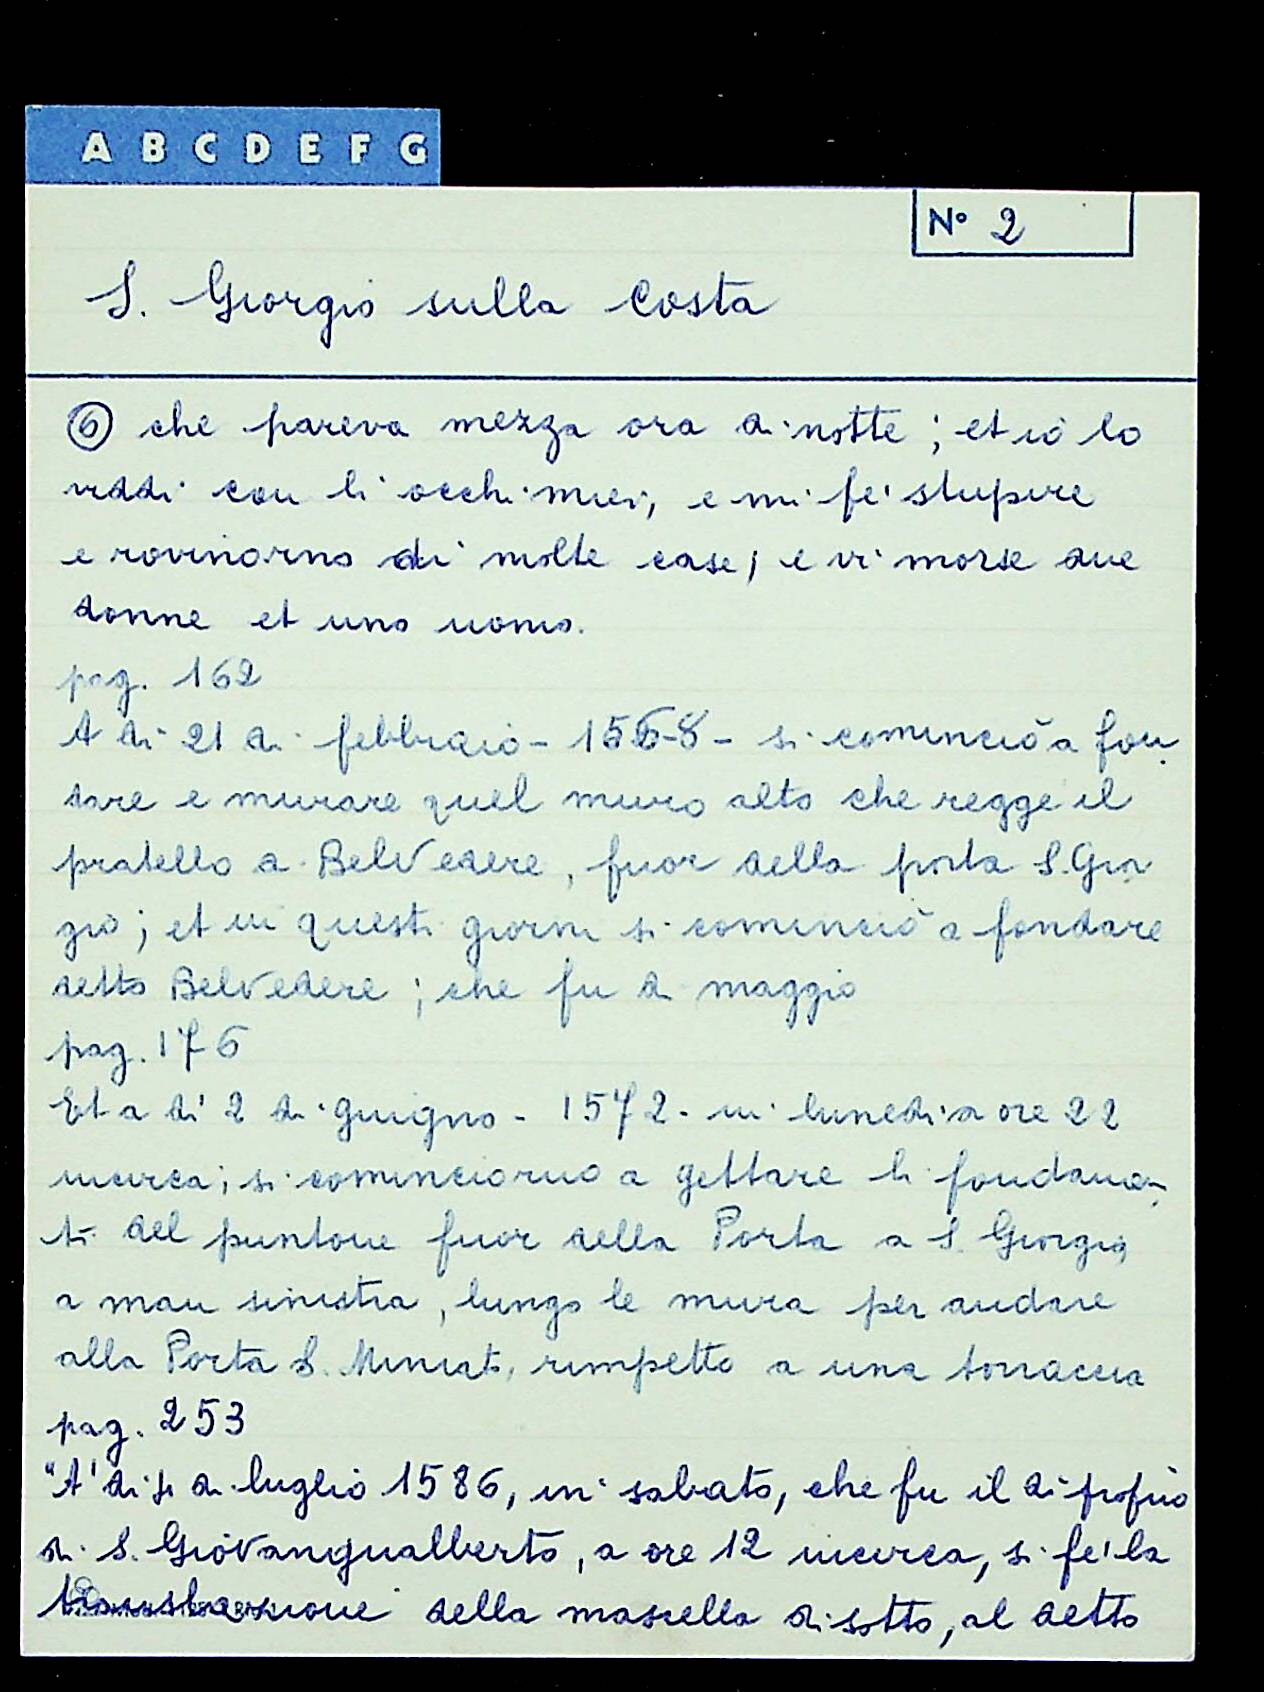 A B C D E F G
N° 2
S. Giorgio sulla Costa
⑥ che pareva mezza ora di notte ; et io lo
viddi con li occhi miei, e mi fe' stupire
e rovinorno di molte case ; e vi morse due
donne et uno uomo.
pag. 162
A di 21 di febbraio - 1568 - si cominciò a fon
dare e murare quel muro alto che regge il
pratello a Belvedere, fuor della porta S. Gior
gio ; et in questi giorni si cominciò a fondare
detto Belvedere ; che fu di maggio
pag. 176
Et a di' 2 di giugno - 1572 - in lunedi a ore 22
incirca ; si cominciorno a gettare li fondamen
ti del puntone fuor della Porta a S. Giorgio,
a man sinistra, lungo le mura per andare
alla Porta S. Miniato, rimpetto a una torraccia
pag. 253
"A' di di luglio 1586, in sabato, che fu il di proprio
di S. Giovangualberto, a ore 12 incirca, si fe' la
translazione della mascella di sotto, al detto